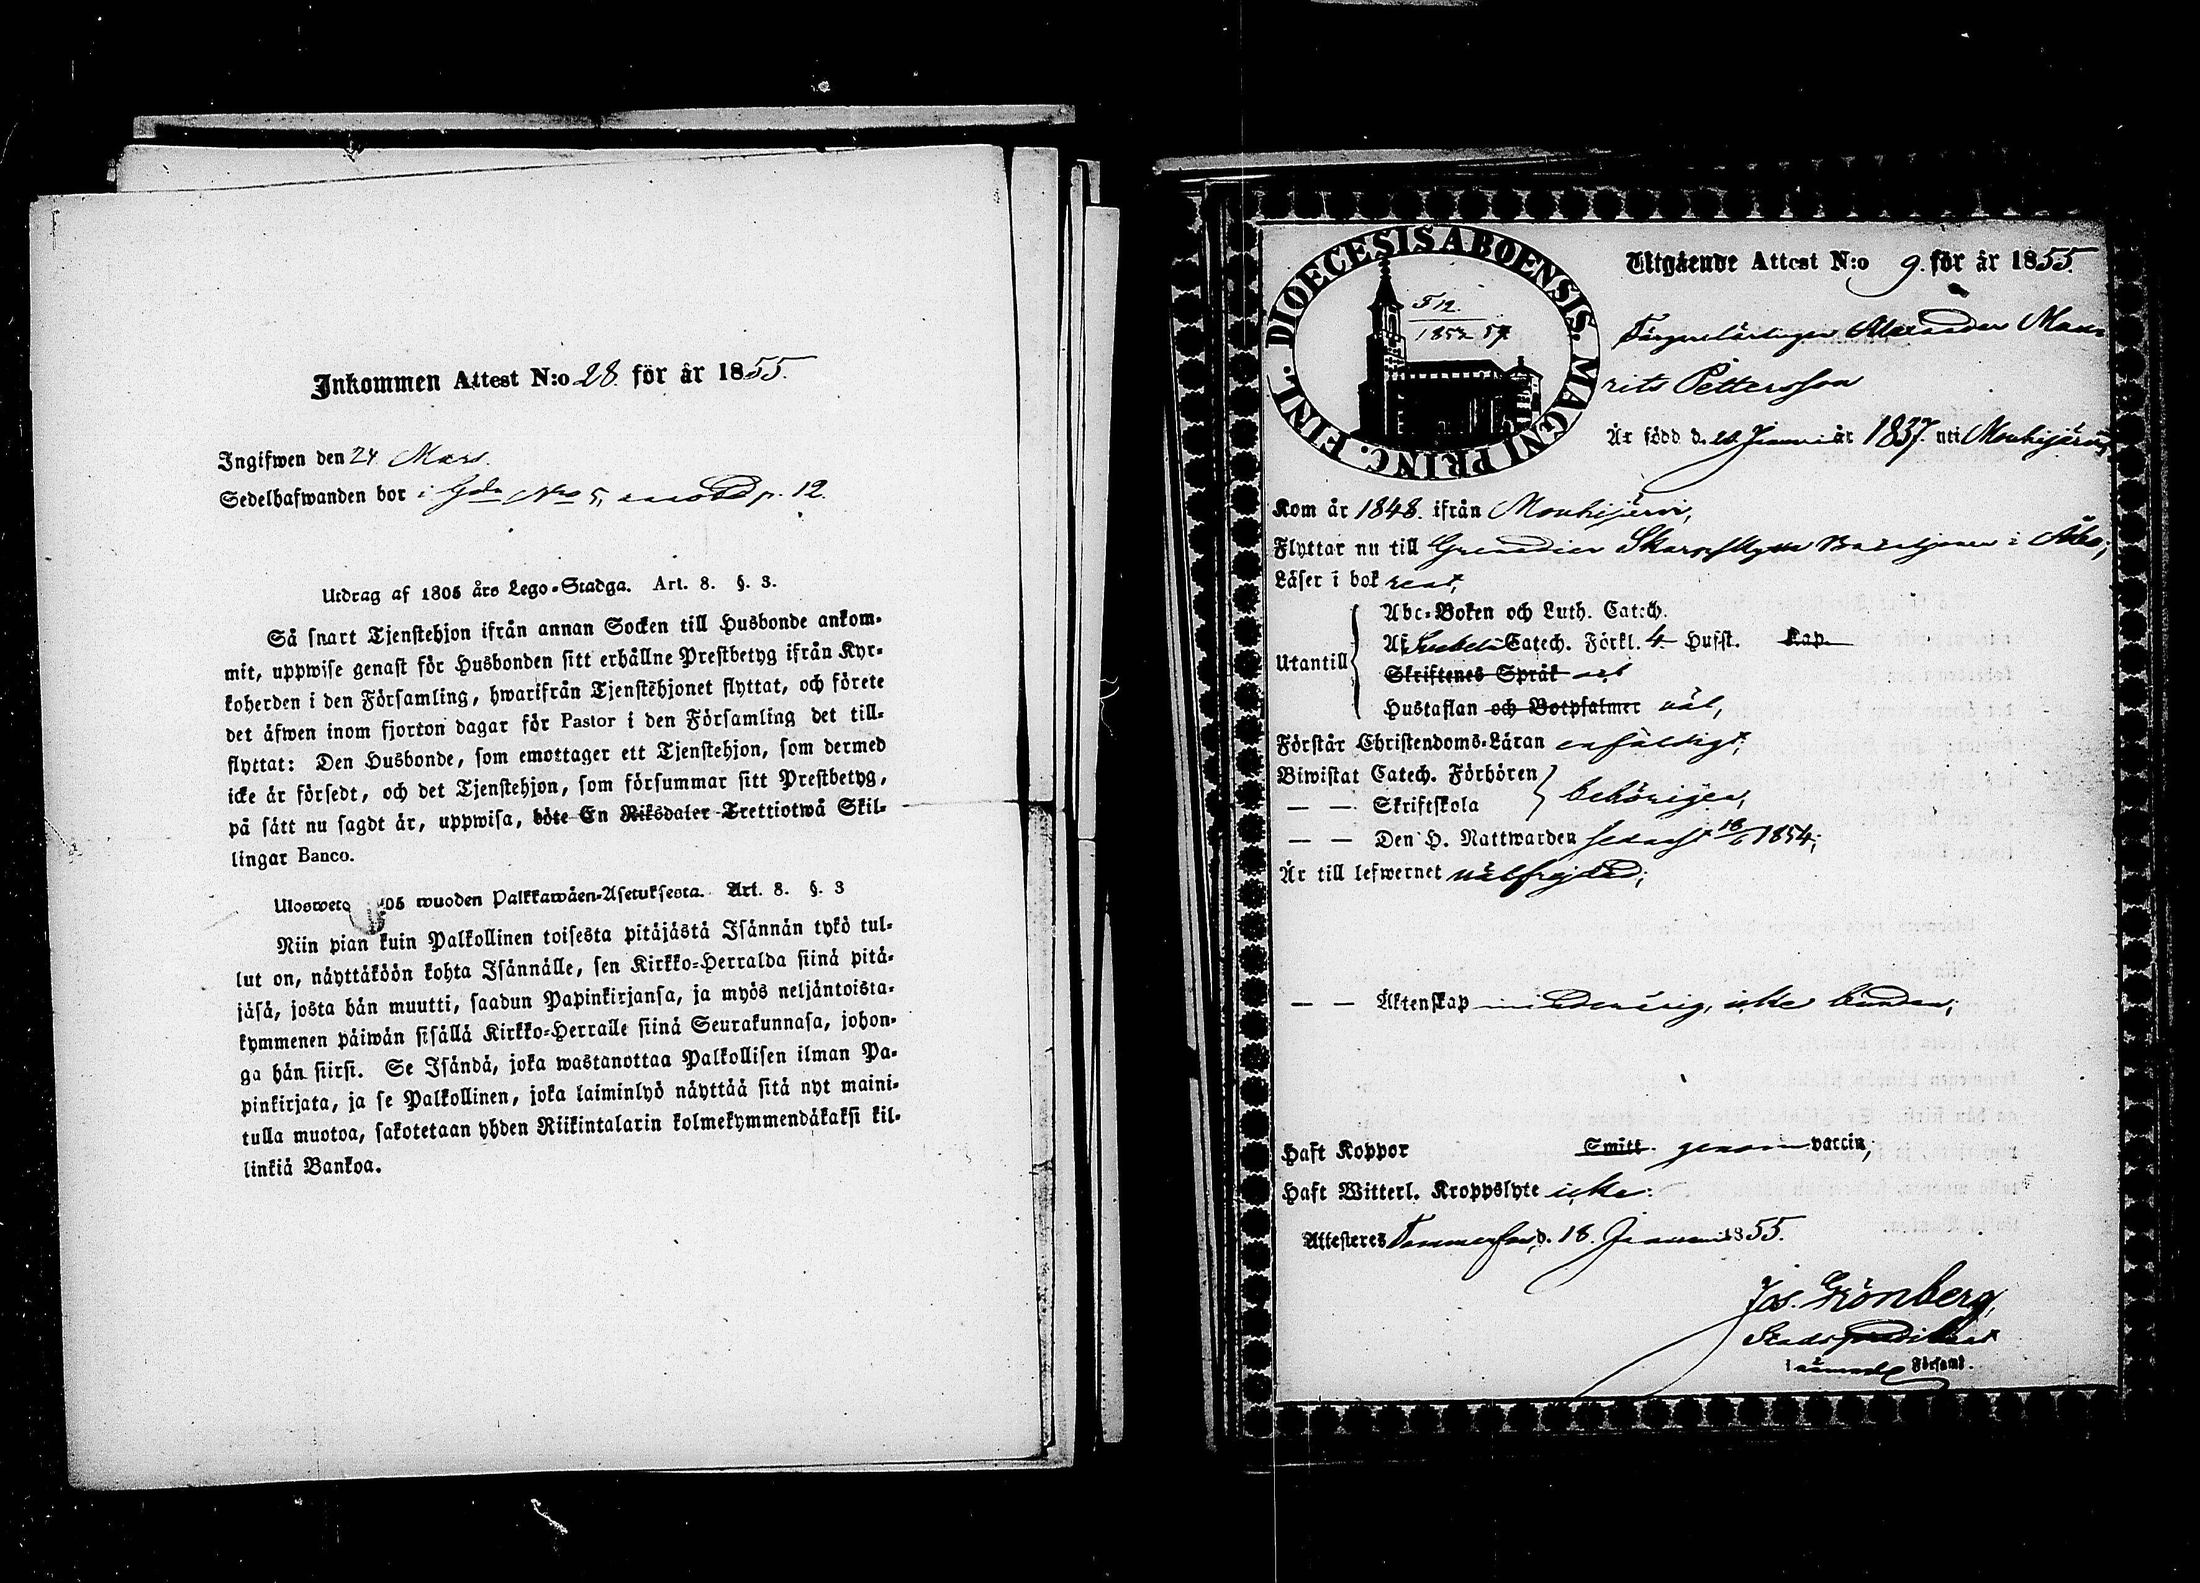 Inkommen Attest N:o 28. för år 1855.
Ingifwen den 24 Mars.
Sedelhafwanden bor i Gdn Nro 5, p. 12.
Utdrag af 1805 års Lego-Stadga. Art. 8. §. 3.
Så snart Tjenstehjon ifrån annan Socken till Husbonde ankom-
mit, uppwise genast för Husbonden sitt erhållne Prestbetyg ifrån Kyr-
koherden i den Församling, hwarifrån Tjenstehjonet flyttat, och förete
det äfwen inom fjorton dagar för Pastor i den Församling det till-
flyttat: Den Husbonde, som emottager ett Tjenstehjon, som dermed
icke är försedt, och det Tjenstehjon, som försummar sitt Prestbetyg,
på sätt nu sagdt är, uppwisa, böte En Riksdaler Trettiotwå Skil-
lingar Banco.
Ulosweto 05 wuoden Palkkawäen-Asetuksesta. Art. 8. §. 3
Niin pian kuin Palkollinen toisesta pitäjästä Isännän tykö tul-
lut on, näyttäköön kohta Isännälle, sen Kirkko-Herralda siinä pitä-
jäsä, josta hän muutti, saadun Papinkirjansa, ja myös neljäntoista-
kymmenen päiwän sisällä Kirkko-Herralle siinä Seurakunnasa, johon-
ga hän siirsi. Se Isändä, joka wastanottaa Palkollisen ilman Pa-
pinkirjata, ja se Palkollinen, joka laiminlyö näyttää sitä nyt maini-
tulla muotoa, sakotetaan yhden Riikintalarin kolmekymmendäkaksi kil-
linkiä Bankoa.
DIOECESIS ABOENSIS. MAGNI PRINC. FINL.
512.
1852 57
Utgående Attest N:o 9. för år 1855.
Färgarelärlingen Alexander Mau-
rits Pettersson
Är född d. Januari år 1837. uti Mouhijärvi,
Kom år 1848. ifrån Mouhijärvi,
Flyttar nu till Grenadier Skarpskytte Bataljonen i Åbo,
Läser i bok rent,
Utantill
Abc-Boken och Luth. Catech.
Af Catech. Förkl. 4 Hufst. Kap.
Skriftenes Språk
Hustaflan och Botpsalmer väl,
Förstår Christendoms-Läran enfaldigt,
Biwistat Catech. Förhören
— — Skriftskola
behörigen,
— — Den H. Nattwarden senast 18/6 1854,
Är till lefwernet välfrejdad,
— — Äktenskap minderårig, icke bunden,
Haft Koppor Smitt. genom vaccin,
Haft Witterl. Kroppslyte icke.
Attesteres Tammerfors, d. 18. Januari 1855.
Jos. Grönberg,
Stadspredikant
i nämnde Församl.